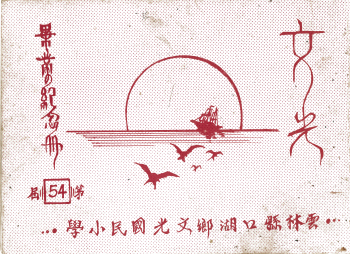 文光
畢業紀念冊
第54屆
雲林縣口湖鄉文光國民小學